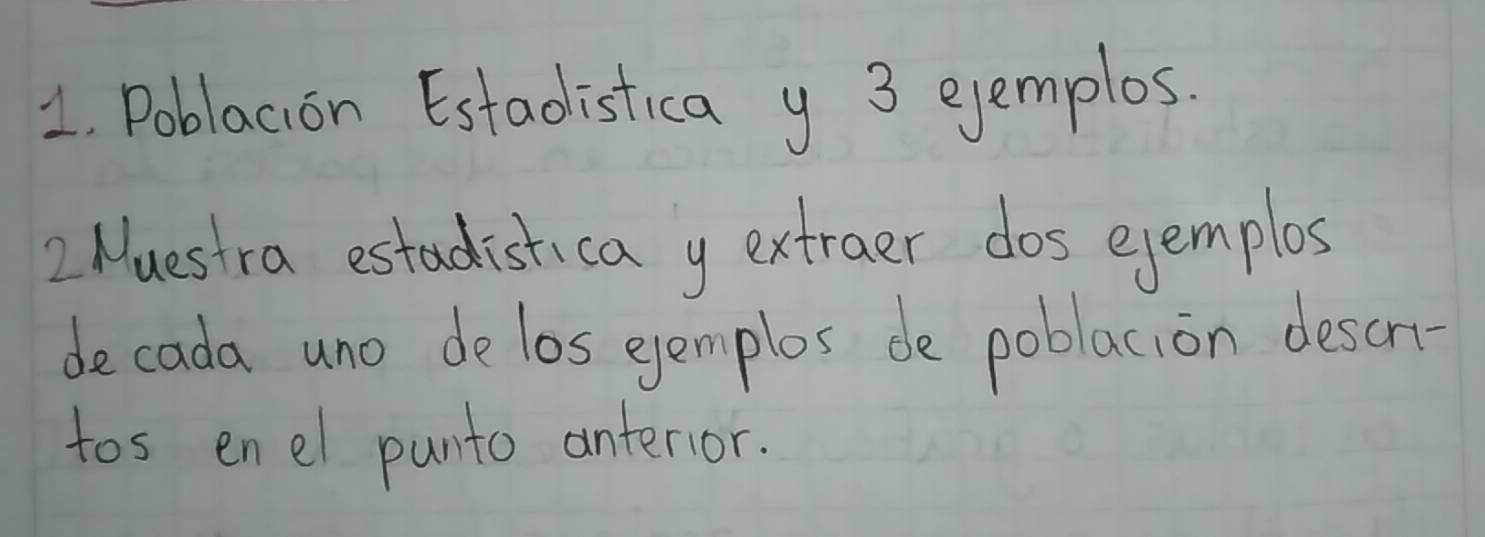 1. Población Estadística y 3 ejemplos.
2 Muestra estadística y extraer dos ejemplos
de cada uno de los ejemplos de población descri-
tos en el punto anterior.